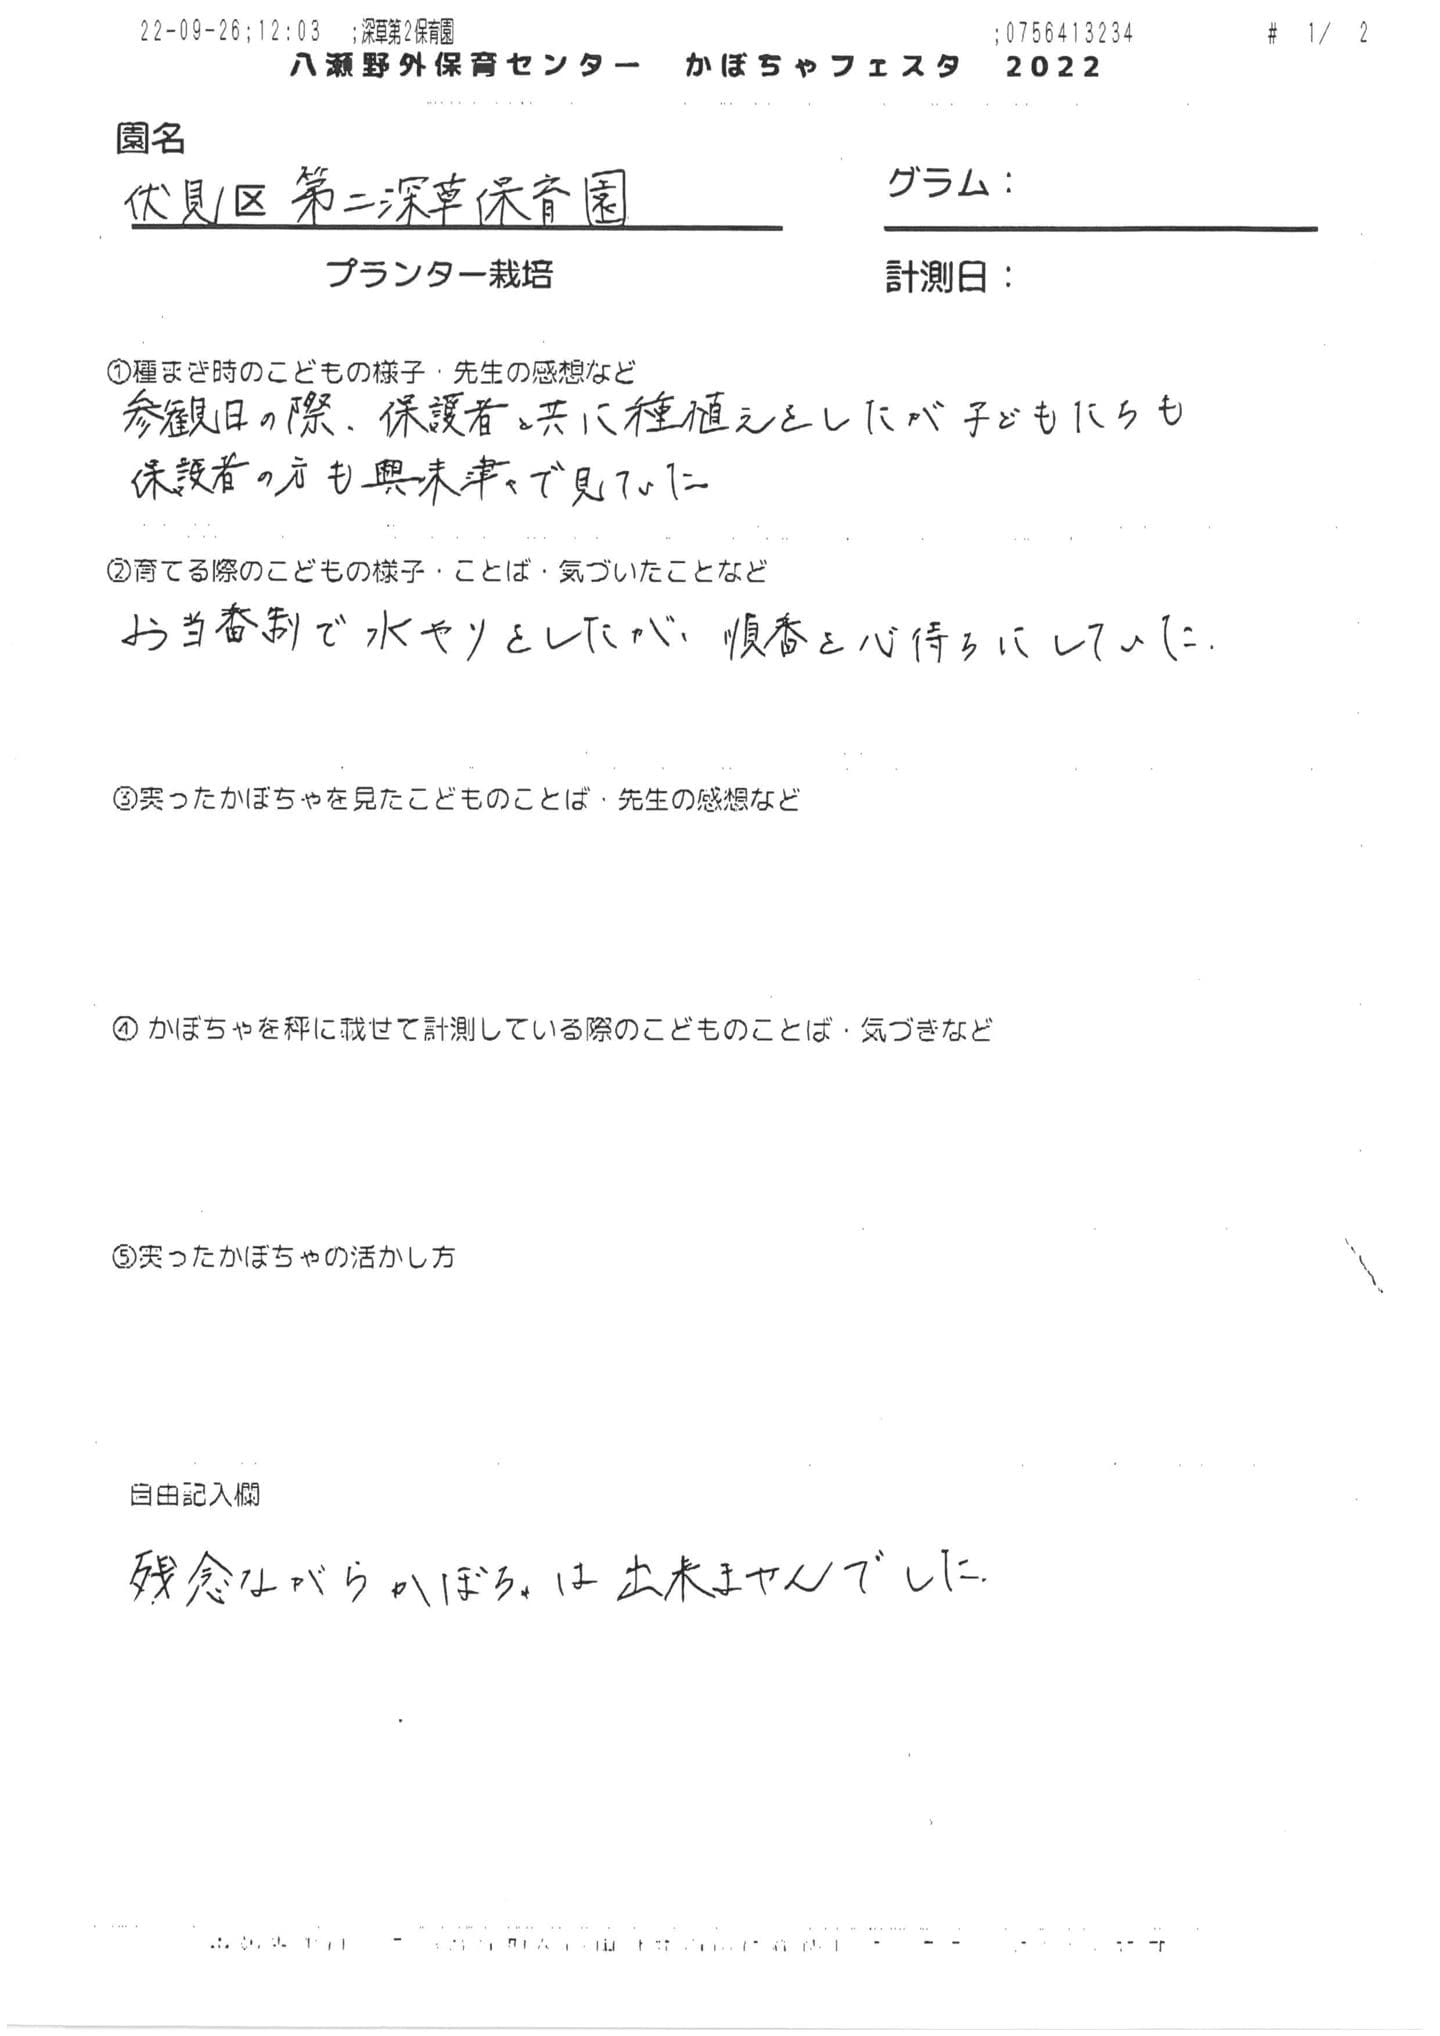 22-09-26;12:03 ;深草第2保育園 ;0756413234 # 1/ 2
八瀬野外保育センター かぼちゃフェスタ 2022
園名
伏見区 第二深草保育園
グラム：
プランター栽培
計測日：
①種まき時のこどもの様子・先生の感想など
参観日の際、保護者と共に種植えをしたが子どもたちも
保護者の方も興味津々で見ていた
②育てる際のこどもの様子・ことば・気づいたことなど
お当番制で水やりをしたが、順番を心待ちにしていた.
③実ったかぼちゃを見たこどものことば・先生の感想など
④ かぼちゃを秤に載せて計測している際のこどものことば・気づきなど
⑤実ったかぼちゃの活かし方
自由記入欄
残念ながらかぼちゃは出来ませんでした.